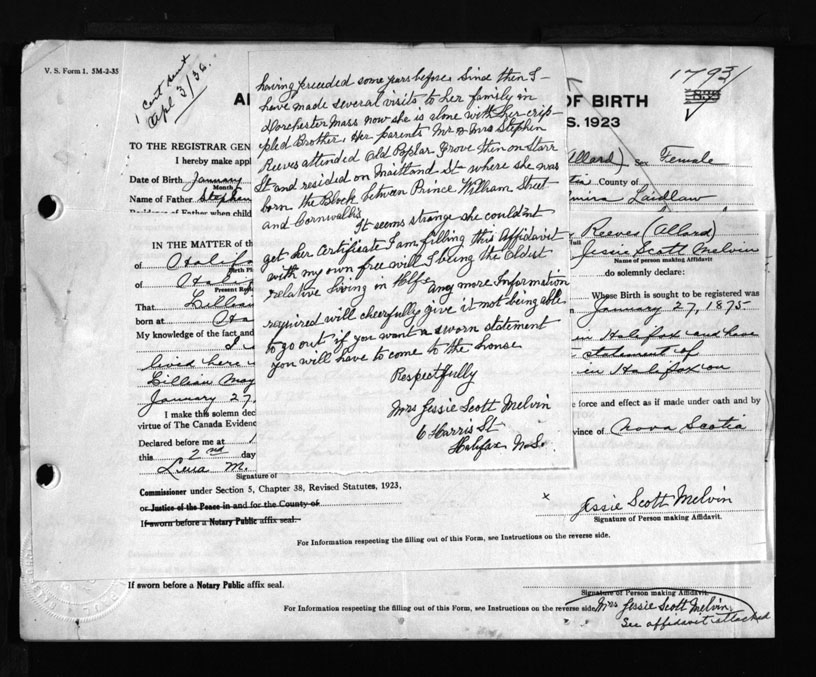 V. S. Form 1. 5M-2-35
1 Cert sent
Apl 3/36
1793
OF BIRTH
S. 1923
TO THE REGISTRAR GEN
I hereby make appl
(Allard) Sex Female
Date of Birth January
Month
County of
Name of Father Stephen
Laidlaw
Residence of Father when child
having preceded some years before, Since then I
have made several visits to her family in
Dorchester Mass now she is alone with her crip-
pled Brother, Her parents Mr & Mrs Stephen
Reeves attended Old Poplar Grove then on Starr
St and resided on Maitland St where she was
born the Block between Prince William Street
and Cornwallis
It seems strange she couldn't
get her Certificate I am filling this Affidavit
with my own free will I being the Oldest
relative living in Hlfx
any more Information
required will cheerfully give it not being able
to go out if you want a sworn statement
you will have to come to the house
Respectfully
Mrs Jessie Scott Melvin
6 Harris St
Halifax N.S.
IN THE MATTER of th
Reeves (Allard)
full
of Halifa
Jessie Scott Melvin
Birth Pl
Name of person making Affidavit
of Hali
do solemnly declare:
Present Re
That Lillian
Whose Birth is sought to be registered was
born at Ha
January 27, 1875
My knowledge of the fact and
I
in Halifax and have
lived here
statement of
Lillian May
in Halifax on
January 27,
I make this solemn dec
e force and effect as if made under oath and by
virtue of The Canada Evidenc
vince of Nova Scotia
Declared before me at
this 2nd day
Lena M.
Signature of
Commissioner under Section 5, Chapter 38, Revised Statutes, 1923,
or Justice of the Peace in and for the County of
If sworn before a Notary Public affix seal.
x Jessie Scott Melvin
Signature of Person making Affidavit.
For Information respecting the filling out of this Form, see Instructions on the reverse side.
If sworn before a Notary Public affix seal.
Signature of Person making Affidavit.
For Information respecting the filling out of this Form, see Instructions on the reverse side.
Mrs Jessie Scott Melvin
See affidavit attached